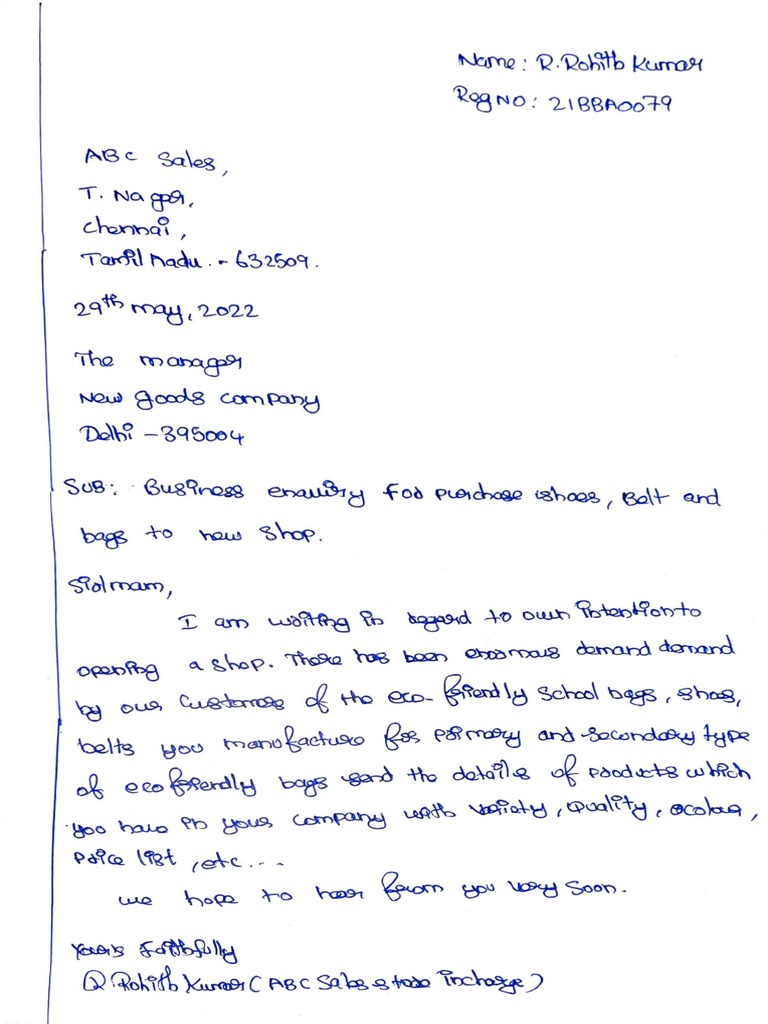 Name: R. Rohith Kumar
Reg NO: 21BBA0079
ABC Sales,
T. Nagar,
Chennai,
Tamil Nadu. - 632509.
29th may, 2022
The manager
New goods company
Delhi - 395004
Sub: Business enquiry for purchase shoes, Belt and
bags to new shop.
Sir/mam,
I am writing in regard to our intention to
opening a shop. There has been enormous demand demand
by our customers of the eco-friendly school bags, shoes,
belts you manufacture for primary and secondary type
of ecofriendly bags send the details of products which
you have in your company with variety, quality, colour,
price list, etc....
we hope to hear from you very soon.
Yours Faithfully
R. Rohith Kumar (ABC Sales store incharge)